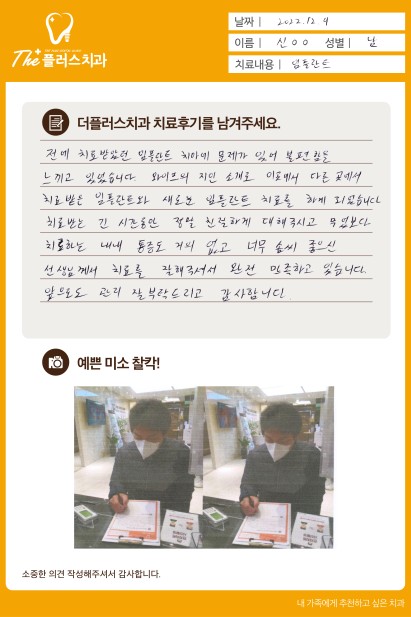 The 플러스치과
날짜 | 2022. 12. 9
이름 | 신○○ 성별 | 남
치료내용 | 임플란트
더플러스치과 치료후기를 남겨주세요.
전에 치료받았던 임플란트 치아에 문제가 있어 불편함을
느끼고 있었습니다 와이프의 지인 소개로 이곳에서 다른 곳에서
치료받은 임플란트와 새로운 임플란트 치료를 하게 되었습니다
치료받는 긴 시간동안 정말 친절하게 대해주시고 무엇보다
치료하는 내내 통증도 거의 없고 너무 솜씨 좋으신
선생님께서 치료를 잘해주셔서 완전 만족하고 있습니다.
앞으로도 관리 잘 부탁드리고 감사합니다.
예쁜 미소 찰칵!
소중한 의견 작성해주셔서 감사합니다.
내 가족에게 추천하고 싶은 치과